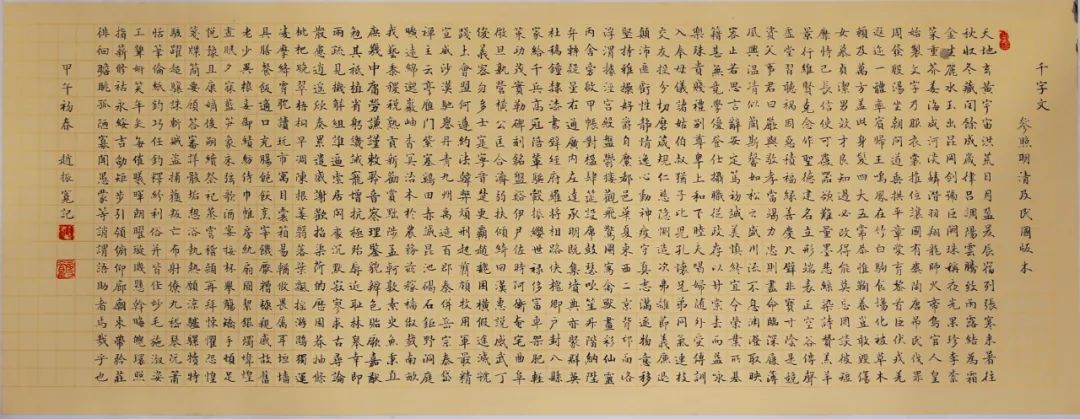 千字文 參照明清及民國版本
天地玄黃宇宙洪荒日月盈昃辰宿列張寒來暑往
秋收冬藏閏餘成歲律呂調陽雲騰致雨露結為霜
金生麗水玉出昆岡劍號巨闕珠稱夜光果珍李柰
菜重芥薑海鹹河淡鱗潛羽翔龍師火帝鳥官人皇
始製文字乃服衣裳推位讓國有虞陶唐弔民伐罪
周發殷湯坐朝問道垂拱平章愛育黎首臣伏戎羌
遐邇一體率賓歸王鳴鳳在竹白駒食場化被草木
賴及萬方蓋此身髮四大五常恭惟鞠養豈敢毀傷
女慕貞潔男效才良知過必改得能莫忘罔談彼短
靡恃己長信使可覆器欲難量墨悲絲染詩讚羔羊
景行維賢克念作聖德建名立形端表正空谷傳聲
虛堂習聽禍因惡積福緣善慶尺璧非寶寸陰是競
資父事君曰嚴與敬孝當竭力忠則盡命臨深履薄
夙興溫凊似蘭斯馨如松之盛川流不息淵澄取映
容止若思言辭安定篤初誠美慎終宜令榮業所基
籍甚無竟學優登仕攝職從政存以甘棠去而益詠
樂殊貴賤禮別尊卑上和下睦夫唱婦隨外受傅訓
入奉母儀諸姑伯叔猶子比兒孔懷兄弟同氣連枝
交友投分切磨箴規仁慈隱惻造次弗離節義廉退
顛沛匪虧性靜情逸心動神疲守真志滿逐物意移
堅持雅操好爵自縻都邑華夏東西二京背邙面洛
浮渭據涇宮殿盤鬱樓觀飛驚圖寫禽獸畫彩仙靈
丙舍傍啟甲帳對楹肆筵設席鼓瑟吹笙升階納陛
弁轉疑星右通廣內左達承明既集墳典亦聚群英
杜稿鍾隸漆書壁經府羅將相路俠槐卿戶封八縣
家給千兵高冠陪輦驅轂振纓世祿侈富車駕肥輕
策功茂實勒碑刻銘磻溪伊尹佐時阿衡奄宅曲阜
微旦孰營桓公匡合濟弱扶傾綺回漢惠說感武丁
俊乂密勿多士寔寧晉楚更霸趙魏困橫假途滅虢
踐土會盟何遵約法韓弊煩刑起翦頗牧用軍最精
宣威沙漠馳譽丹青九州禹跡百郡秦并岳宗泰岱
禪主云亭雁門紫塞雞田赤誠昆池碣石鉅野洞庭
曠遠綿邈巖岫杳冥治本於農務茲稼穡俶載南畝
我藝黍稷稅熟貢新勸賞黜陟孟軻敦素史魚秉直
庶幾中庸勞謙謹敕聆音察理鑒貌辨色貽厥嘉猷
勉其祗植省躬譏誡寵增抗極殆辱近恥林皋幸即
兩疏見機解組誰逼索居閒處沉默寂寥求古尋論
散慮逍遙欣奏累遣慼謝歡招渠荷的歷園莽抽條
枇杷晚翠梧桐早凋陳根委翳落葉飄搖游鵾獨運
凌摩絳霄耽讀玩市寓目囊箱易輶攸畏屬耳垣墻
具膳餐飯適口充腸飽飫烹宰饑厭糟糠親戚故舊
老少異糧妾御績紡侍巾帷房紈扇圓潔銀燭煒煌
晝眠夕寐藍筍象床弦歌酒宴接杯舉觴矯手頓足
悅豫且康嫡後嗣續祭祀蒸嘗稽顙再拜悚懼恐惶
箋牒簡要顧答審詳骸垢想浴執熱願涼驢騾犢特
駭躍超驤誅斬賊盜捕獲叛亡布射僚丸嵇琴阮嘯
恬筆倫紙鈞巧任釣釋紛利俗並皆佳妙毛施淑姿
工顰妍笑年矢每催曦暉朗曜璇璣懸斡晦魄環照
指薪修祜永綏吉劭矩步引領俯仰廊廟束帶矜莊
徘徊瞻眺孤陋寡聞愚蒙等誚謂語助者焉哉乎也
甲午初春 趙振寬記